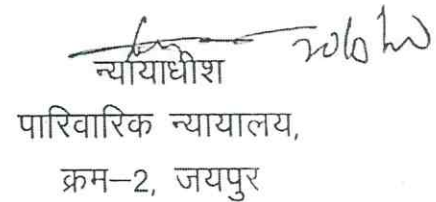 न्यायाधीश
पारिवारिक न्यायालय,
क्रम–2, जयपुर